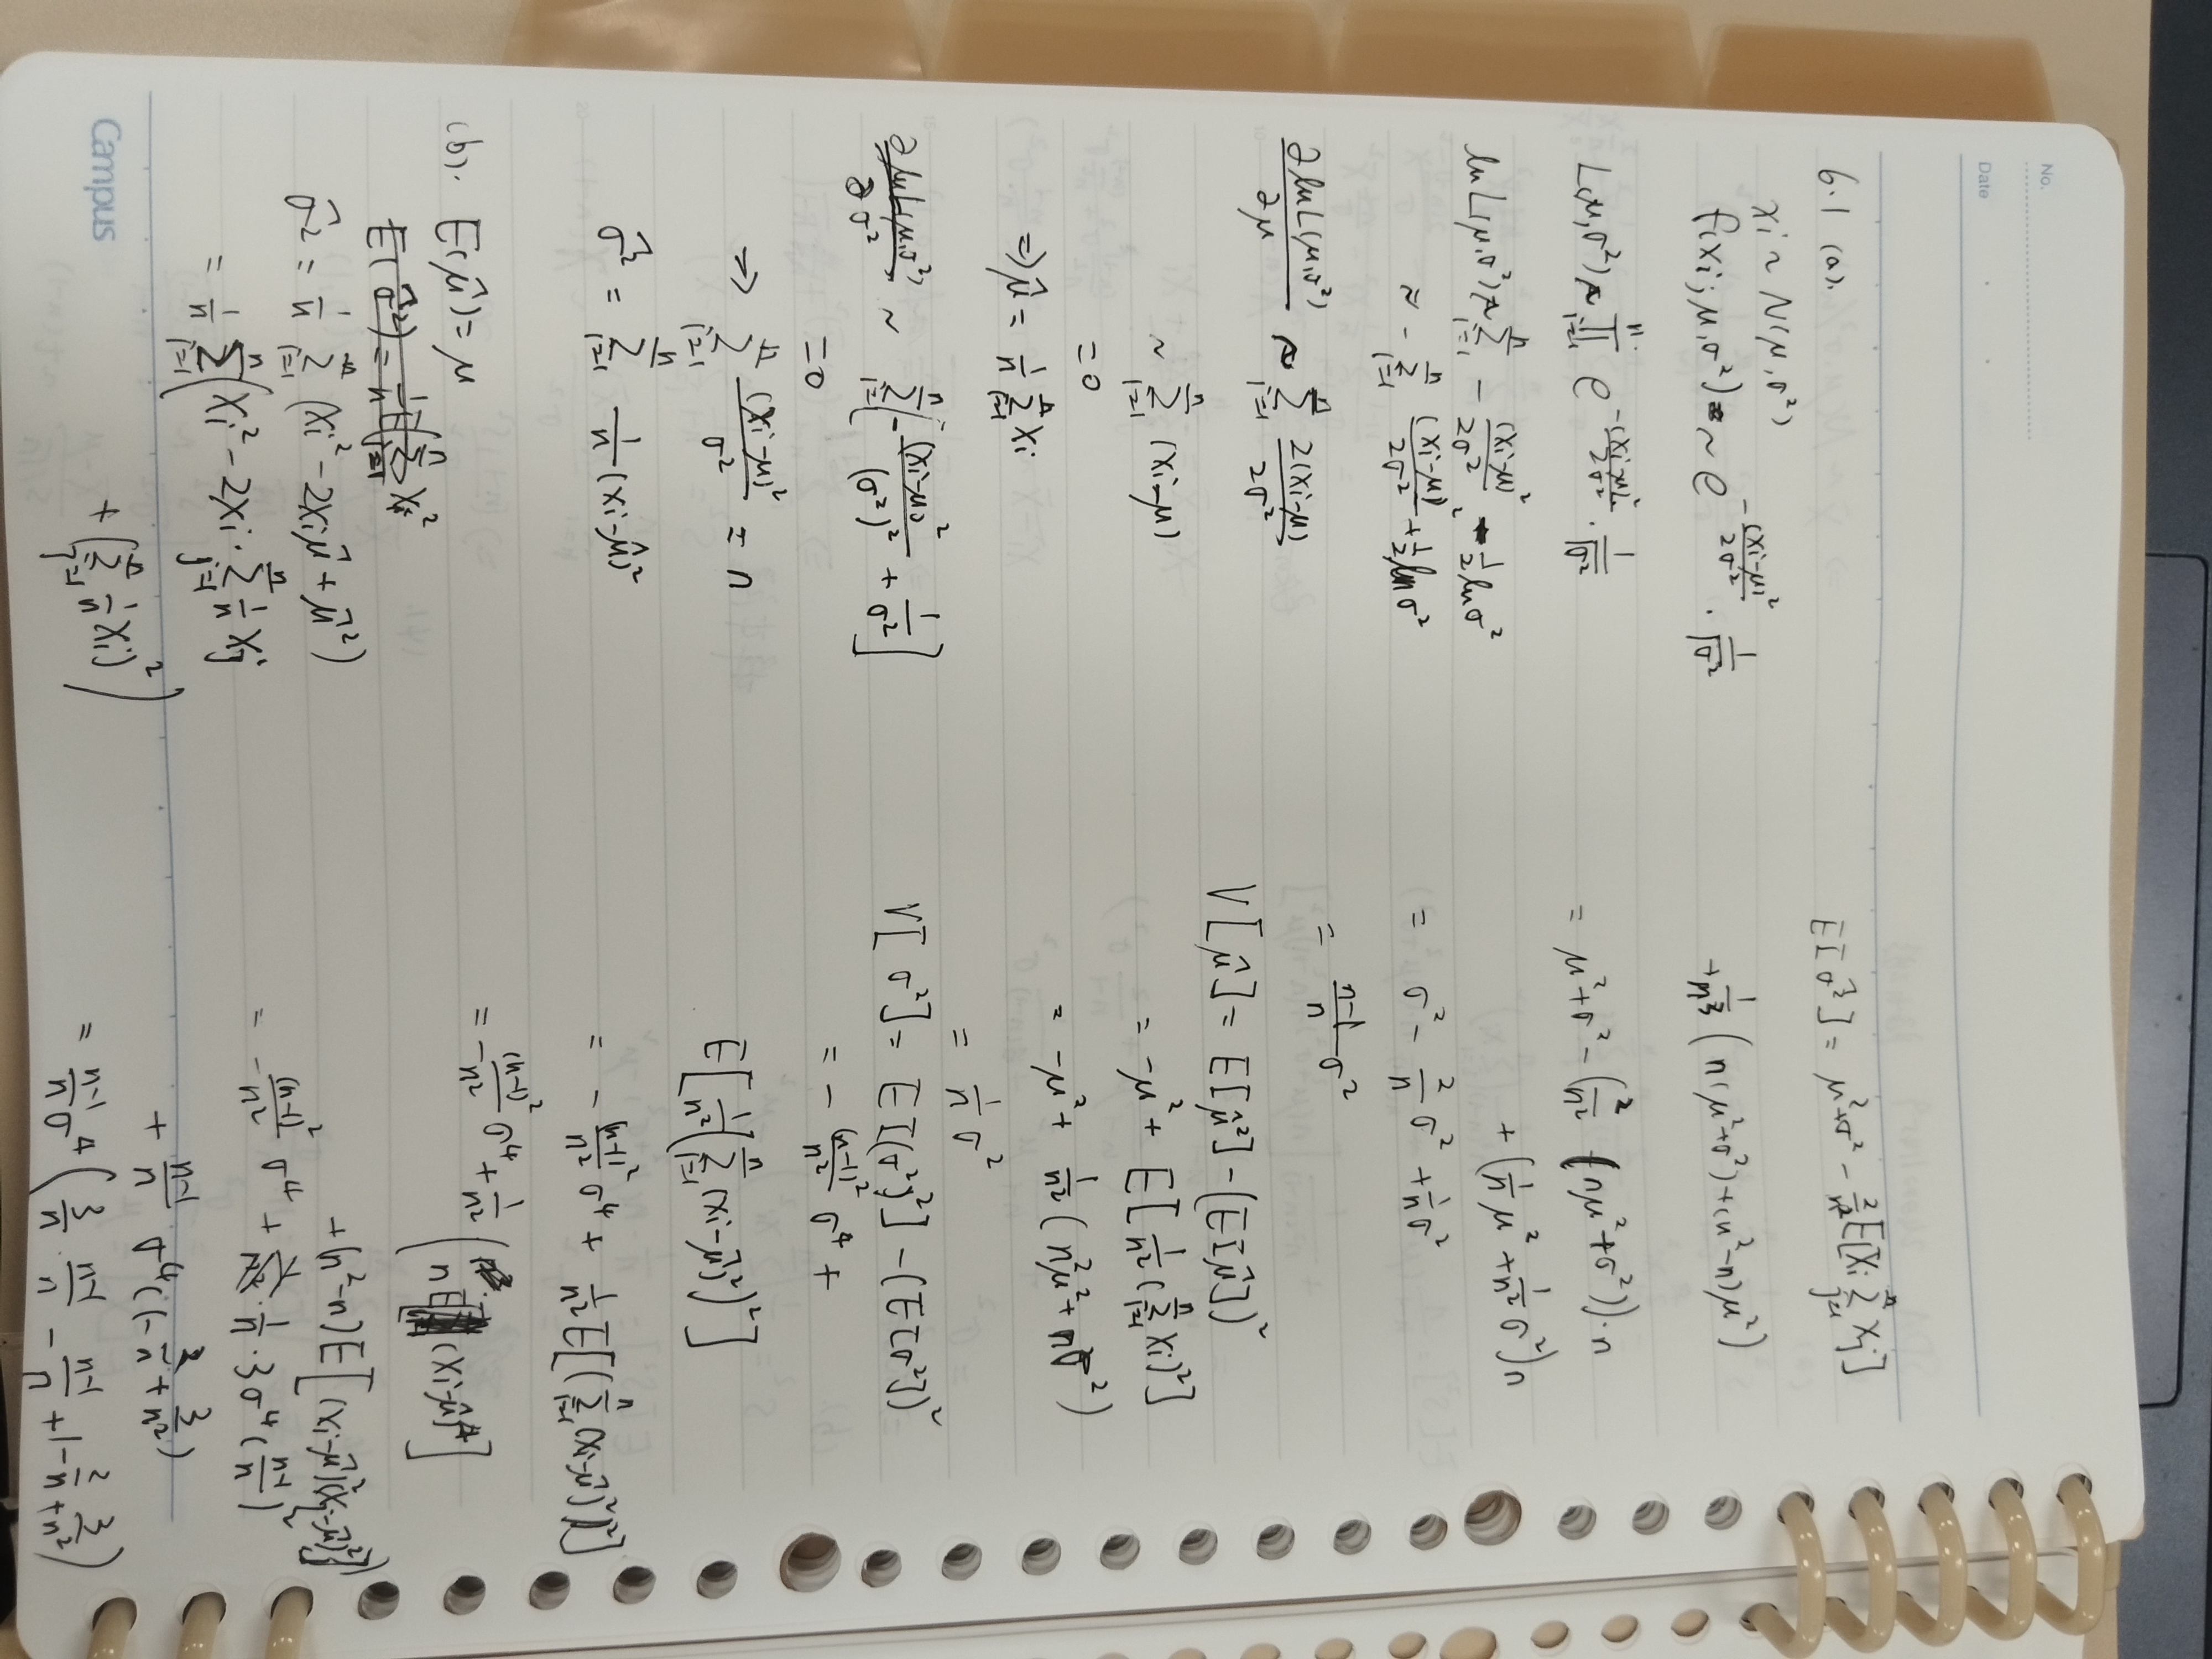 No.
Date
6.1 (a).
xi ~ N(μ, σ²)
f(xi; μ, σ²) ~ e^{-\frac{(xi-μ)²}{2σ²}} · \frac{1}{\sqrt{σ²}}
L(μ, σ²) ~ \prod_{i=1}^{n} e^{-\frac{(xi-μ)²}{2σ²}} · \frac{1}{\sqrt{σ²}}
ln L(μ, σ²) ~ \sum_{i=1}^{n} - \frac{(xi-μ)²}{2σ²} - \frac{1}{2} ln σ²
~ - \sum_{i=1}^{n} \frac{(xi-μ)²}{2σ²} + \frac{1}{2} ln σ²
\frac{∂ ln L(μ, σ²)}{∂μ} ~ \sum_{i=1}^{n} \frac{2(xi-μ)}{2σ²}
~ \sum_{i=1}^{n} (xi-μ)
= 0
⇒ \hat{μ} = \frac{1}{n} \sum_{i=1}^{n} xi
\frac{∂ ln L(μ, σ²)}{∂σ²} ~ \sum_{i=1}^{n} [-\frac{(xi-μ)²}{(σ²)²} + \frac{1}{σ²}]
= 0
⇒ \sum_{i=1}^{n} \frac{(xi-μ)²}{σ²} = n
\hat{σ²} = \sum_{i=1}^{n} \frac{1}{n} (xi-\hat{μ})²
(b). E(\hat{μ}) = μ
E(\hat{σ²}) = \frac{1}{n} E(\sum_{i=1}^{n} xi²
\hat{σ²} = \frac{1}{n} \sum_{i=1}^{n} (xi² - 2xi\hat{μ} + \hat{μ}²)
= \frac{1}{n} \sum_{i=1}^{n} (xi² - 2xi · \sum_{j=1}^{n} \frac{1}{n} xj
+ (\sum_{j=1}^{n} \frac{1}{n} xi)²)
E[\hat{σ²}] = μ²+σ² - \frac{2}{n²} E[xi \sum_{j=1}^{n} xj]
+ \frac{1}{n³} (n(μ²+σ²)+(n²-n)μ²)
= μ²+σ² - (\frac{2}{n²} (nμ²+σ²))·n
+ (\frac{1}{n} μ² + \frac{1}{n²} σ²)n
= σ² - \frac{2}{n} σ² + \frac{1}{n} σ²
= \frac{n-1}{n} σ²
V[\hat{μ}] = E[\hat{μ}²] - (E[\hat{μ}])²
= -μ² + E[\frac{1}{n²} (\sum_{i=1}^{n} xi)²]
= -μ² + \frac{1}{n²} (n²μ² + nσ²)
= \frac{1}{n} σ²
V[σ²] = E[(σ²)²] - (E[σ²])²
= - \frac{(n-1)²}{n²} σ⁴ +
E[\frac{1}{n²} (\sum_{i=1}^{n} (xi-\hat{μ})²)²]
= - \frac{(n-1)²}{n²} σ⁴ + \frac{1}{n²} E[(\sum_{i=1}^{n} (xi-\hat{μ})²)²]
= - \frac{(n-1)²}{n²} σ⁴ + \frac{1}{n²} (nE[(xi-\hat{μ})⁴]
+ (n²-n) E[(xi-\hat{μ})²(xj-\hat{μ})²])
= - \frac{(n-1)²}{n²} σ⁴ + \frac{1}{n} · 3σ⁴ (\frac{n-1}{n})²
+ \frac{n-1}{n} σ⁴ (1 - \frac{2}{n} + \frac{3}{n²})
= \frac{n-1}{n} σ⁴ (\frac{3}{n} · \frac{n-1}{n} - \frac{n-1}{n} + 1 - \frac{2}{n} + \frac{3}{n²})
Campus